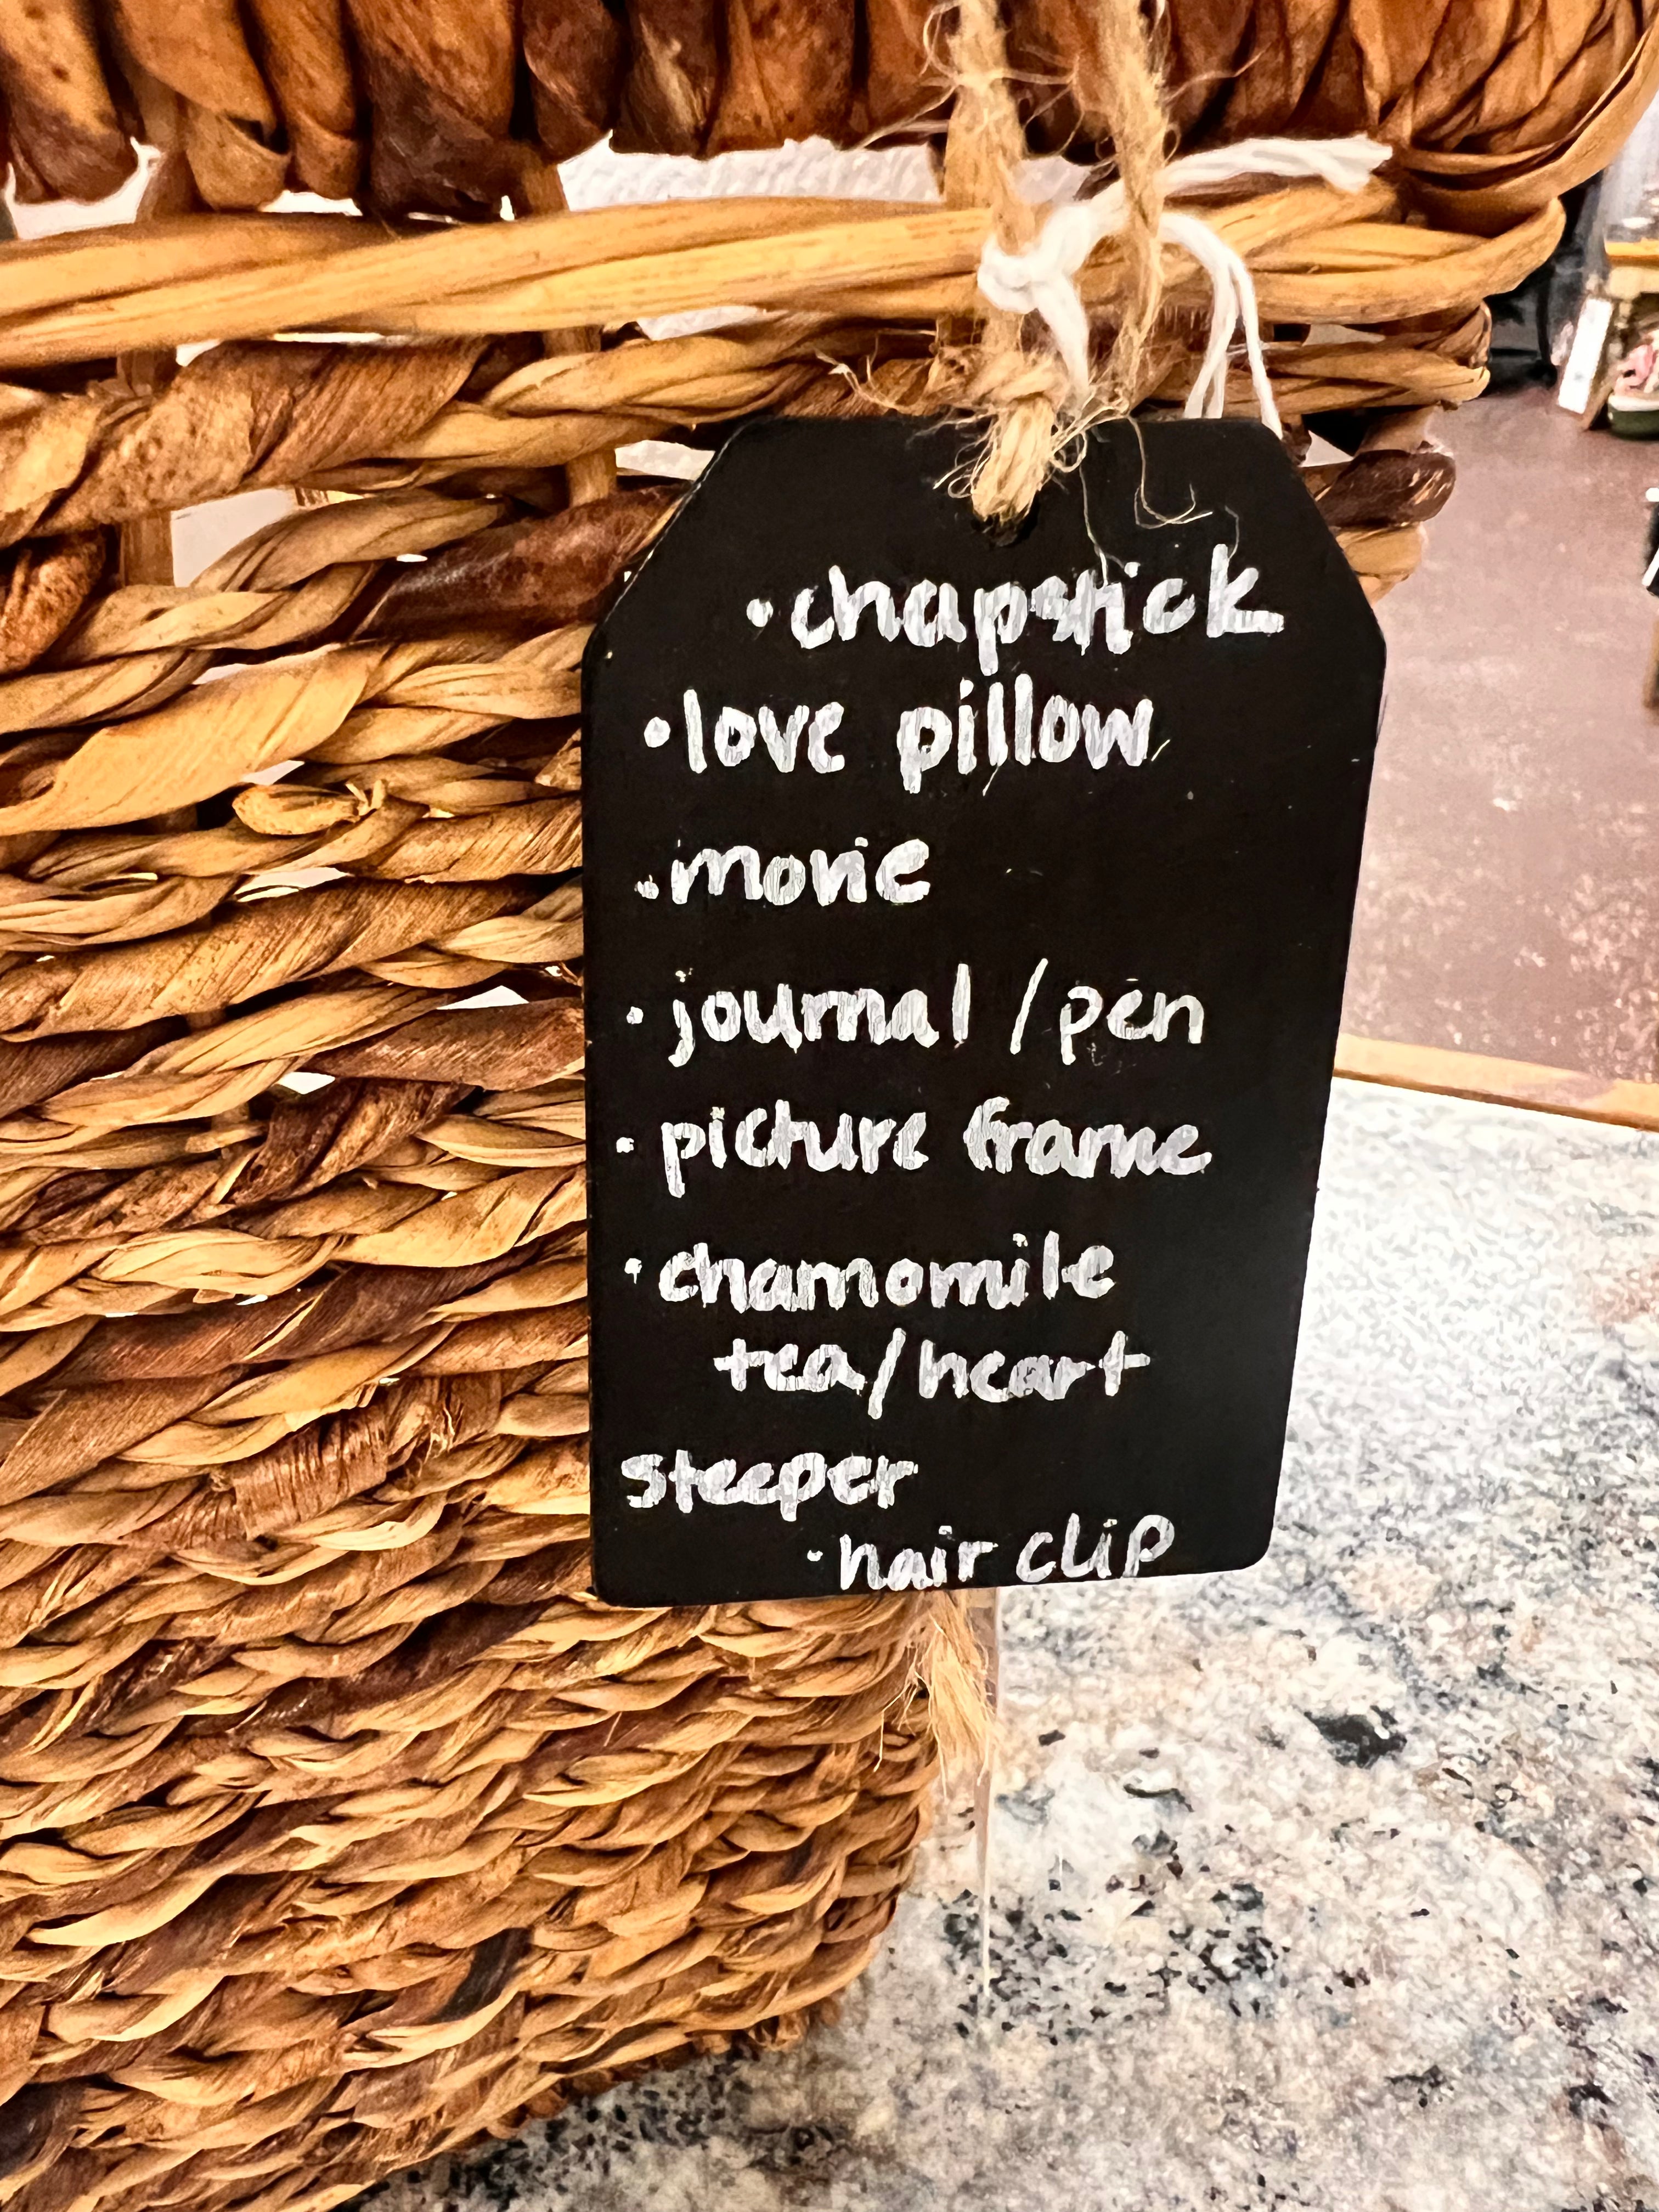 ·chapstick
·love pillow
·movie
·journal/pen
·picture frame
·chamomile
tea/heart
steeper
·hair clip